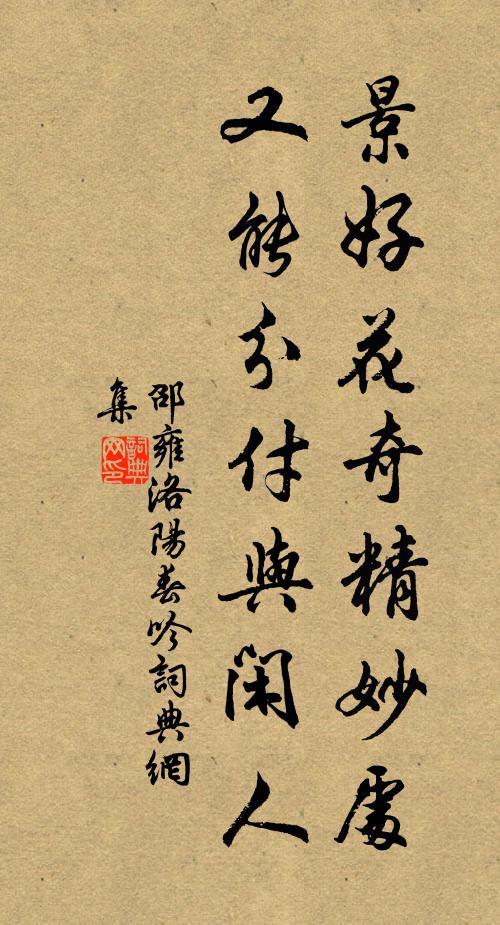 景好花奇精妙處
又能分付與閑人
邵雍洛陽春吟詞典網
集
詞典
网印